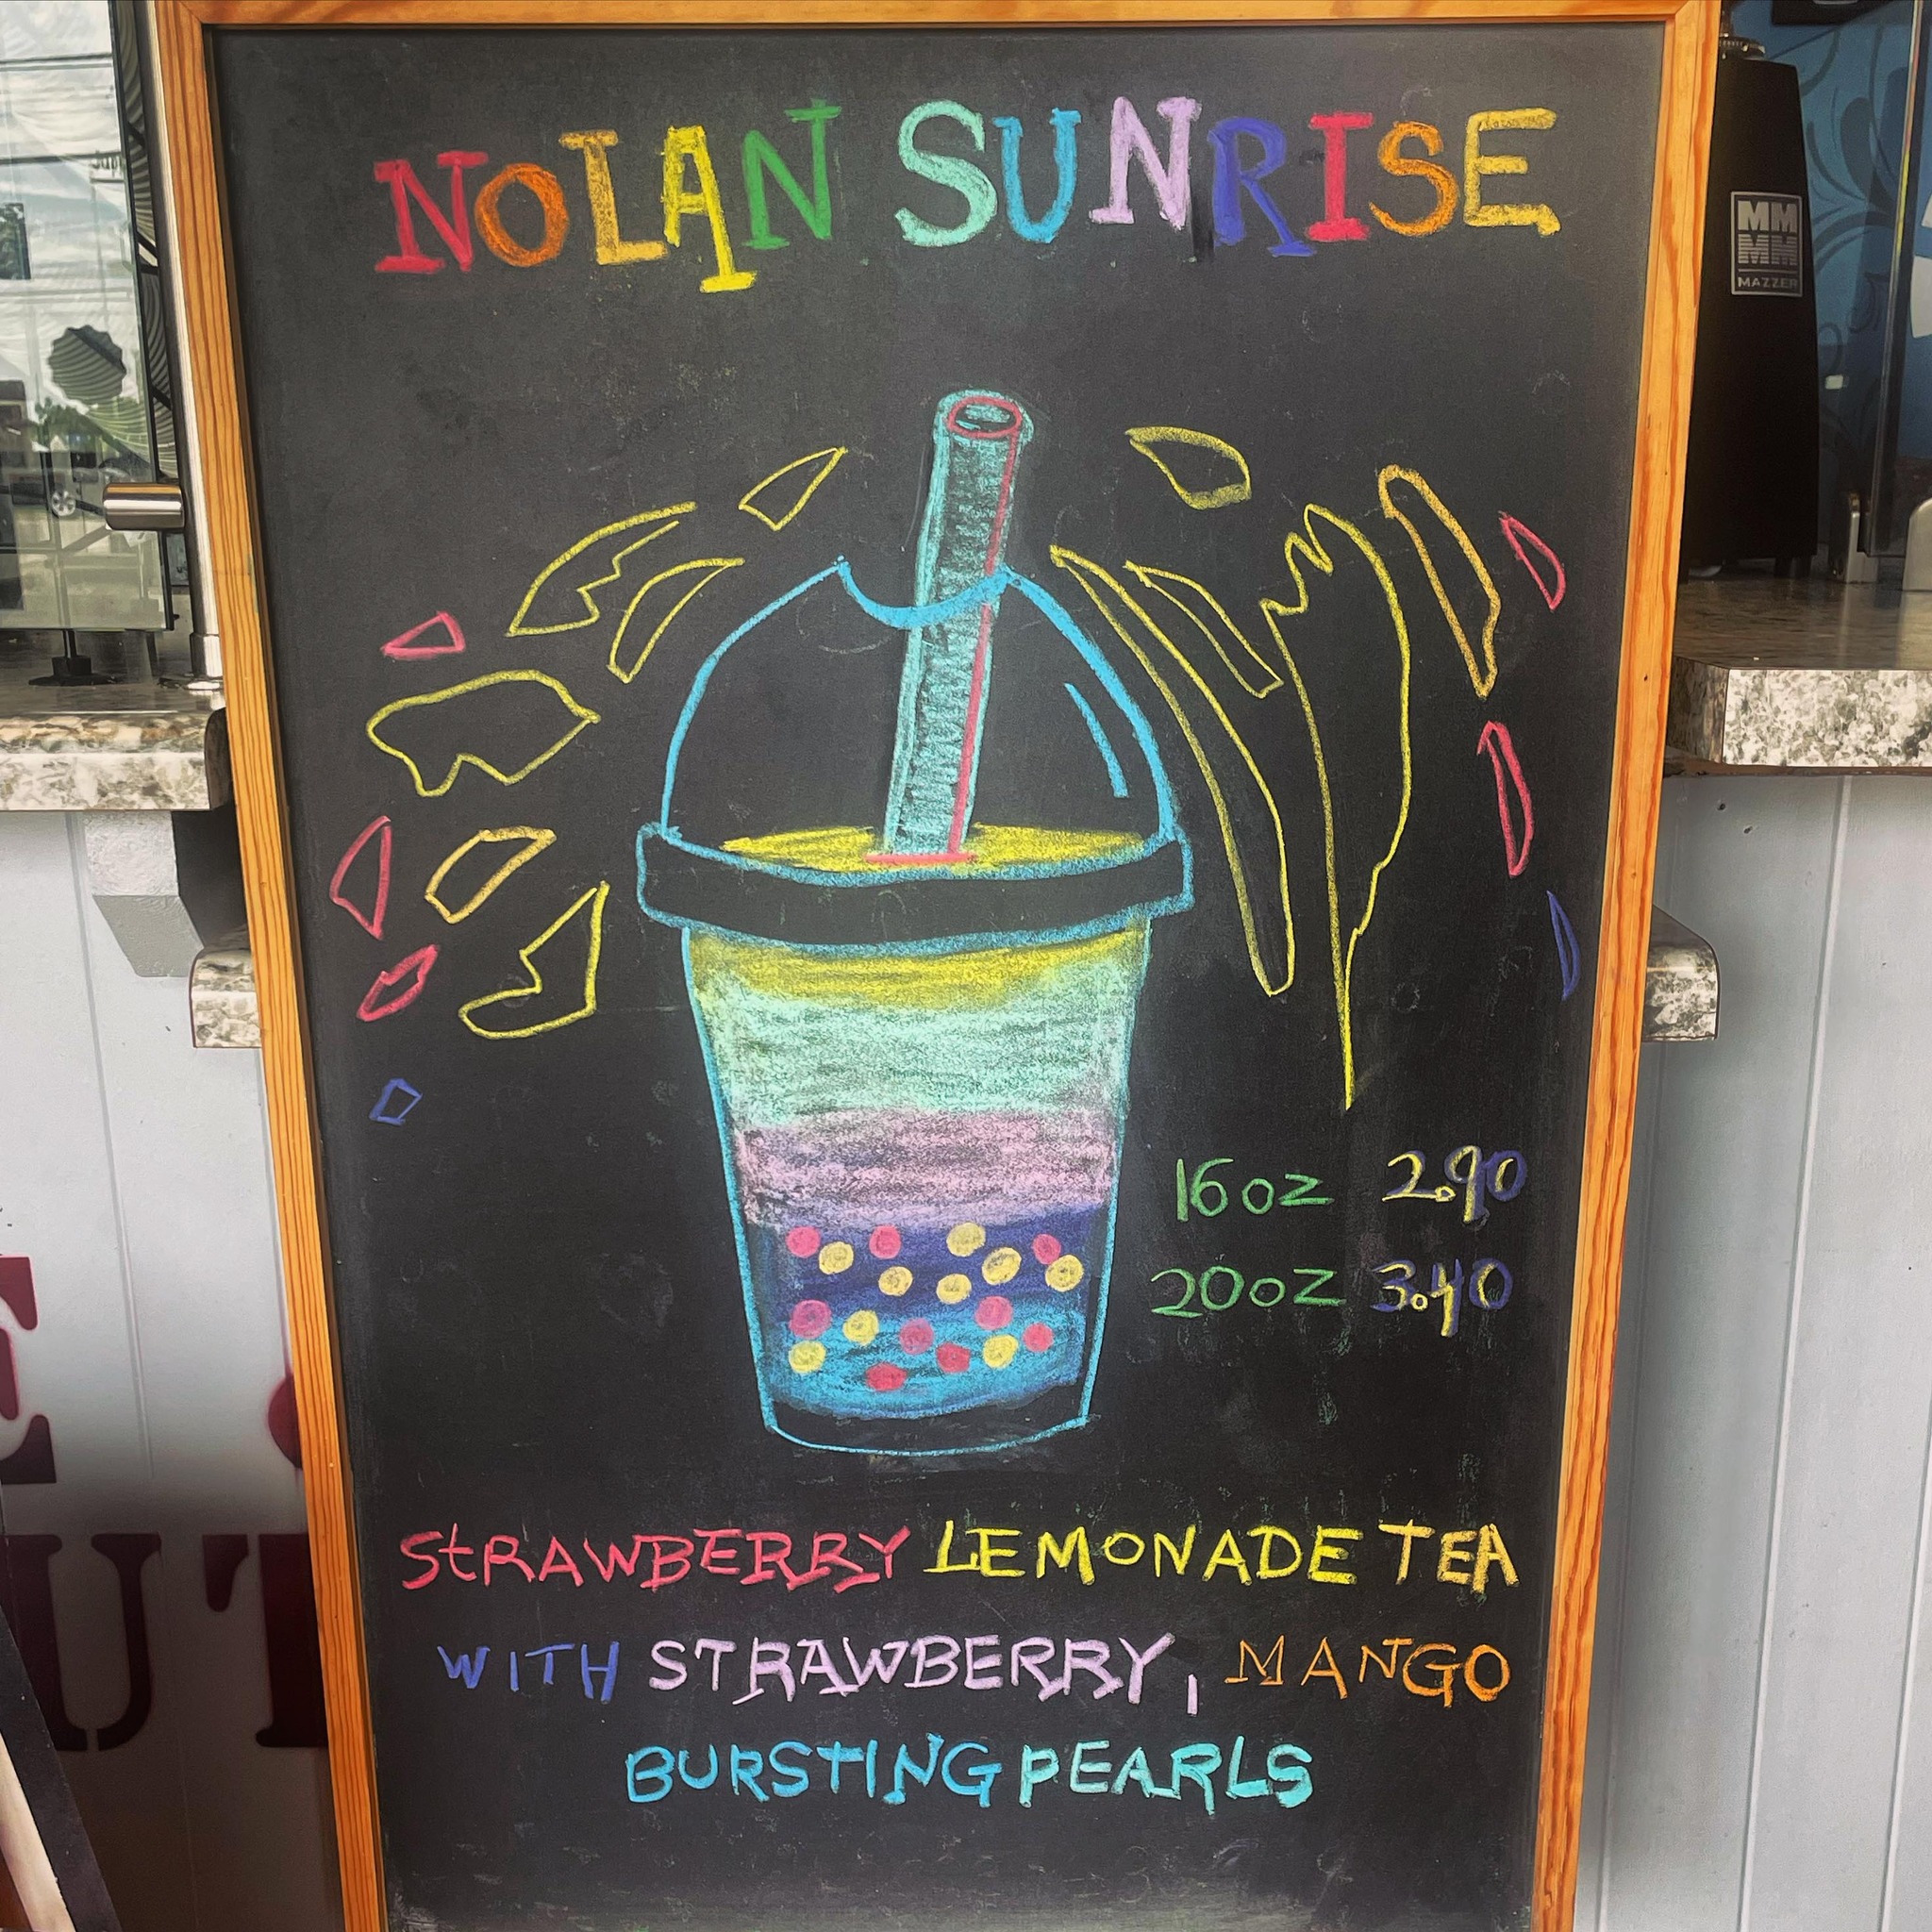 NOLAN SUNRISE
MM
MM
MAZZER
16oz 2.90
20oz 3.40
STRAWBERRY LEMONADE TEA
WITH STRAWBERRY, MANGO
BURSTING PEARLS
E
UT